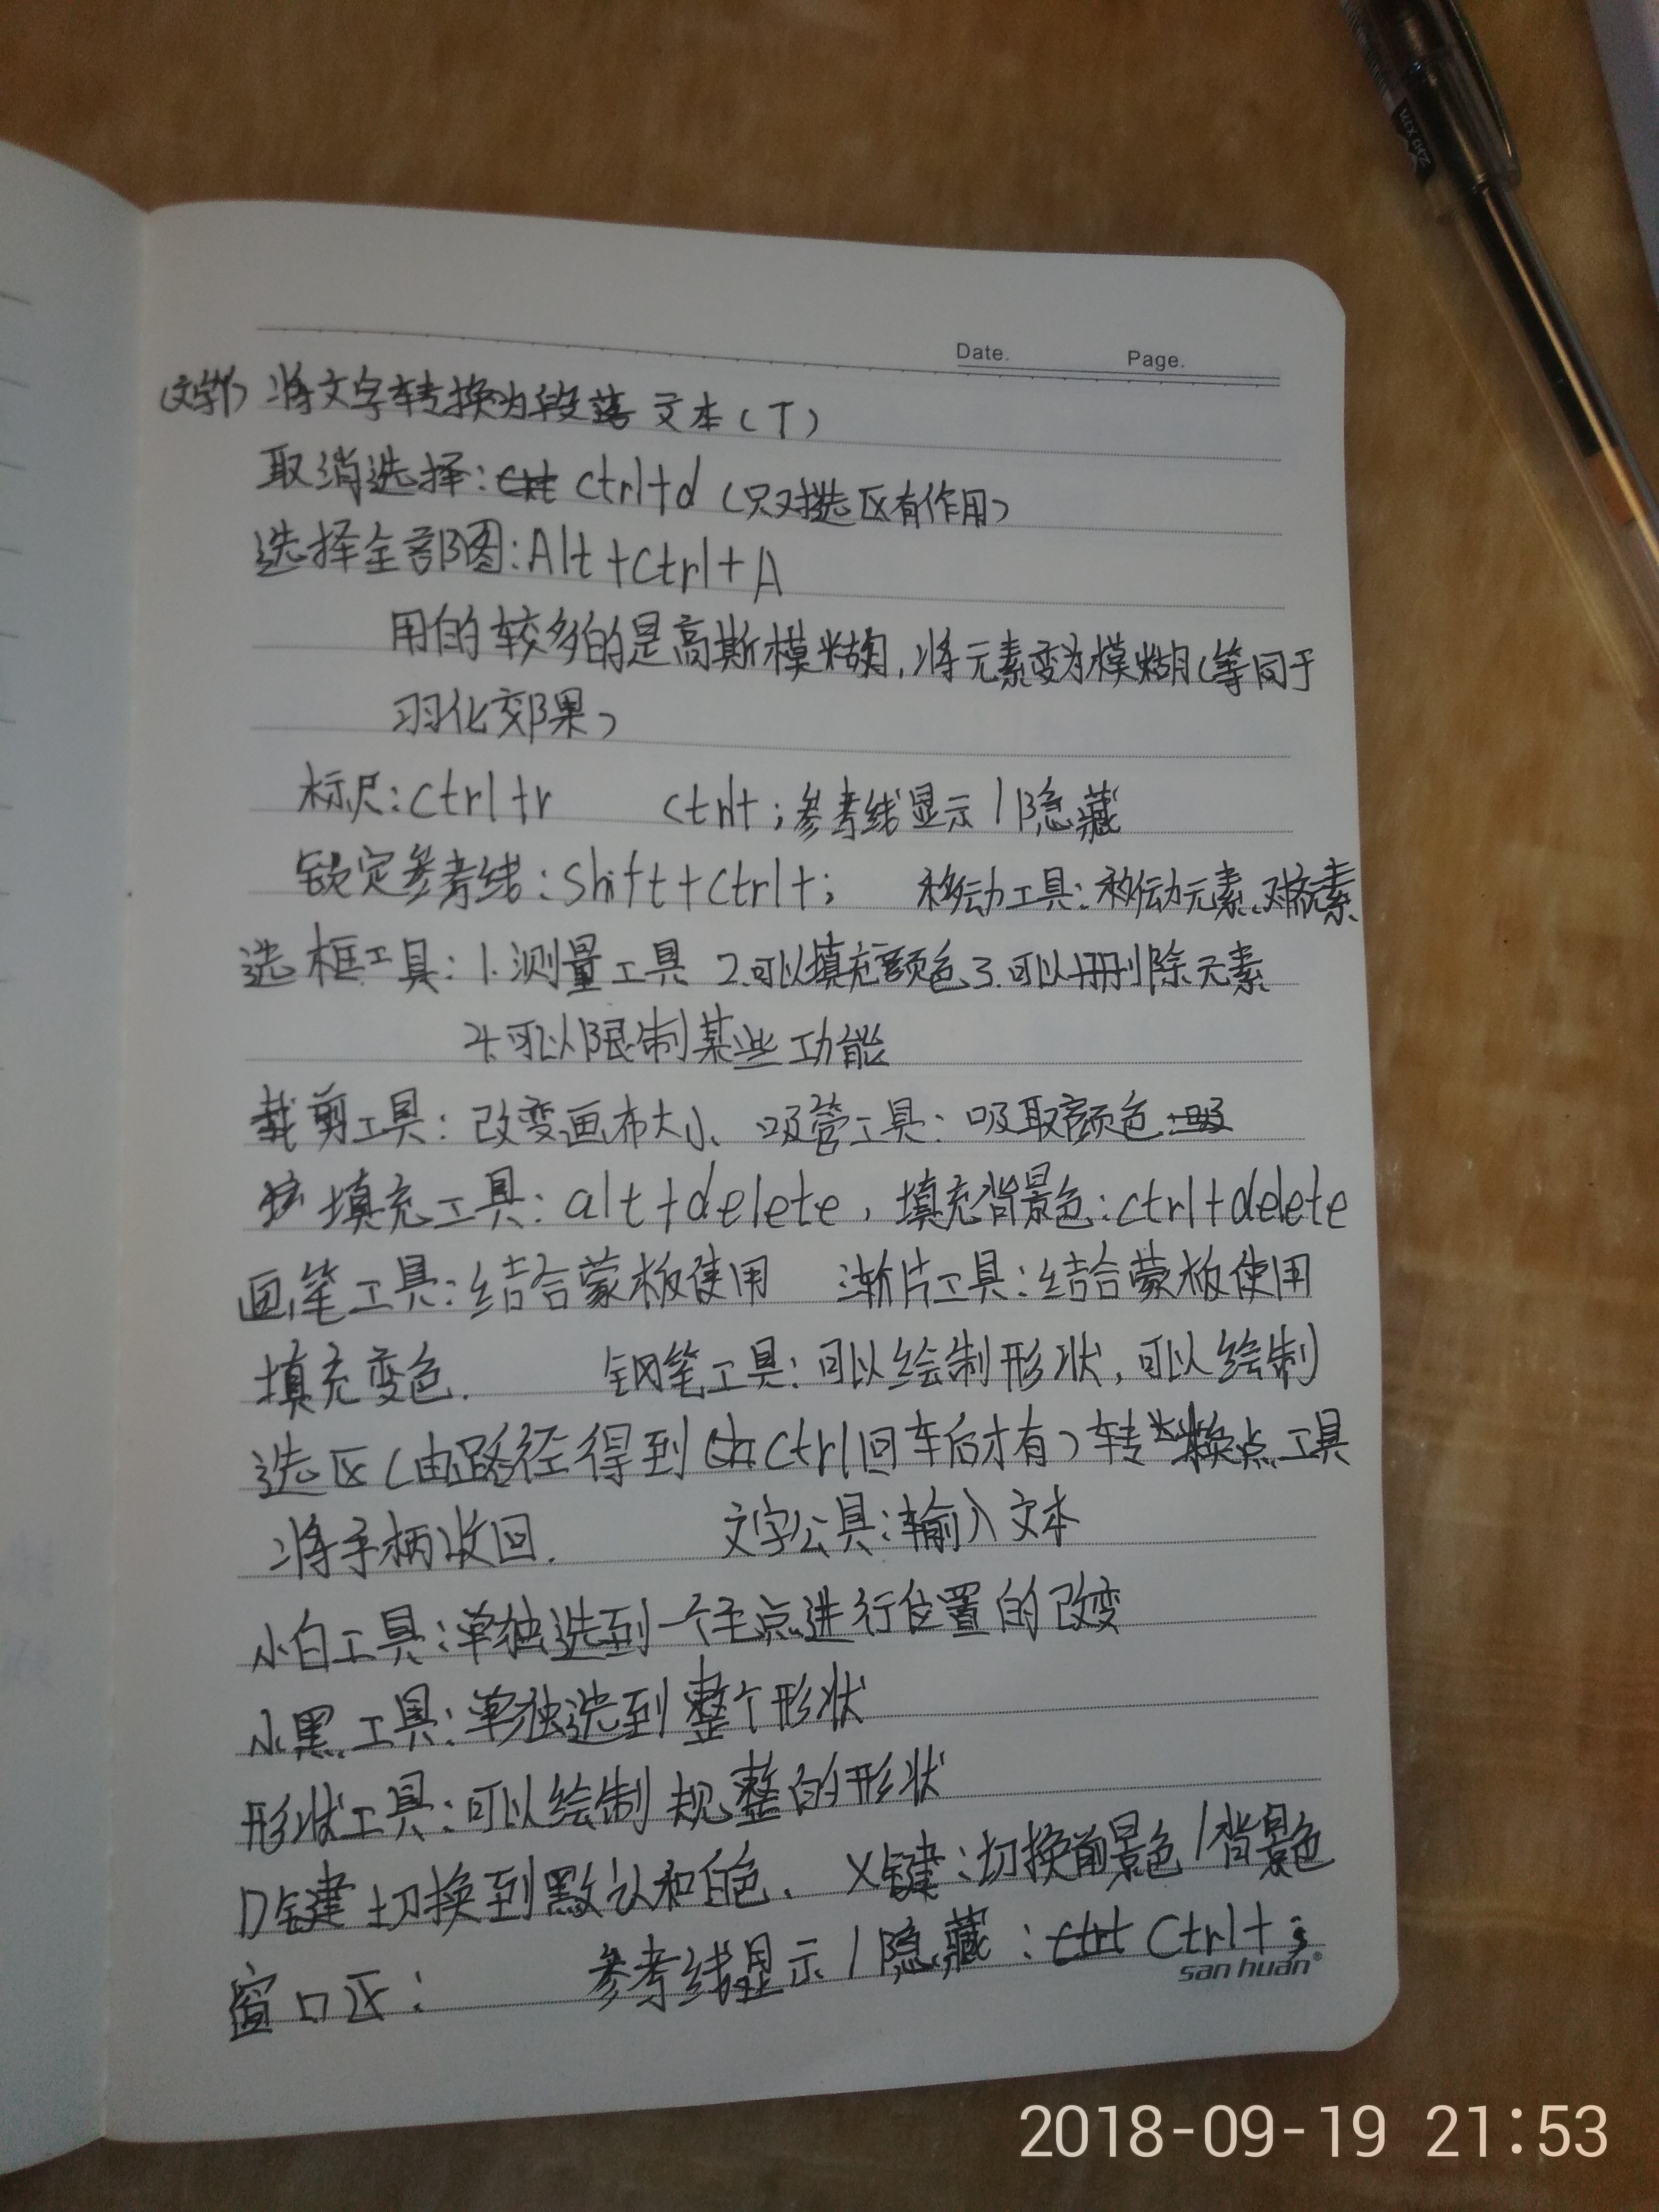 Date. Page.
(文字) 将文字转换为段落文本(T)
取消选择: ctrl+d (只对选区有作用)
选择全部图: Alt+Ctrl+A
用的较多的是高斯模糊, 将元素变为模糊(等同于
羽化效果)
标尺: Ctrl+r ctrl+; 参考线显示/隐藏
锁定参考线: Shift+Ctrl+; 移动工具: 移动元素、对齐元素
选框工具: 1.测量工具 2.可以填充颜色 3.可以删除元素
4.可以限制某些功能
裁剪工具: 改变画布大小、吸管工具: 吸取颜色
填充工具: alt+delete, 填充背景色: ctrl+delete
画笔工具: 结合蒙板使用 渐片工具: 结合蒙板使用
填充变色. 钢笔工具: 可以绘制形状, 可以绘制
选区(由路径得到 Ctrl回车后才有) 转换点工具
将手柄收回. 文字工具: 输入文本
小白工具: 单独选到一个主点进行位置的改变
小黑工具: 单独选到整个形状
形状工具: 可以绘制规整的形状
D键切换到默认和白色. X键: 切换前景色/背景色
窗口区: 参考线显示/隐藏: Ctrl+;
san huan®
2018-09-19 21:53